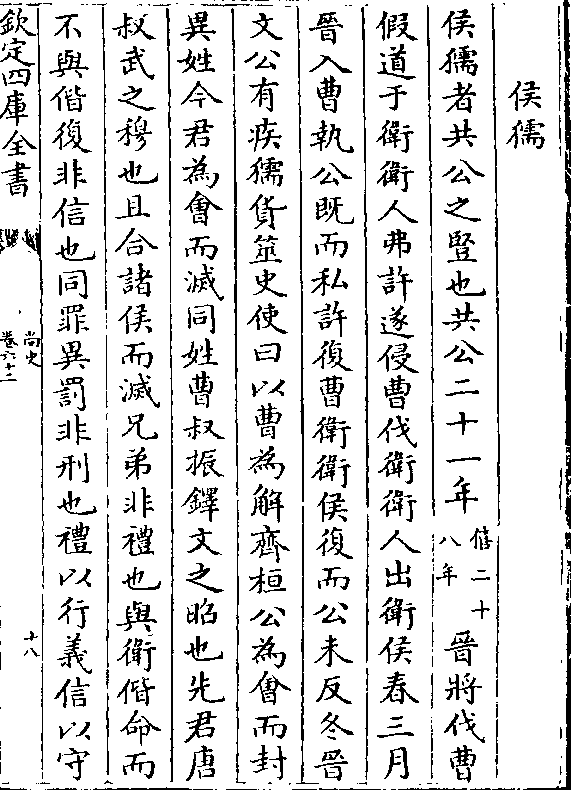 侯獳
侯獳者共公之豎也共公二十一年
僖二十
八年
晉將伐曹
假道于衛衛人弗許遂侵曹伐衛衛人出衛侯春三月
晉入曹執公既而私許復曹衛衛侯復而公未反冬晉
文公有疾獳貨筮史使曰以曹為解齊桓公為會而封
異姓今君為會而滅同姓曹叔振鐸文之昭也先君唐
叔武之穆也且合諸侯而滅兄弟非禮也與衛偕命而
不與偕復非信也同罪異罰非刑也禮以行義信以守
欽定四庫全書
尚史
卷六十二
十八